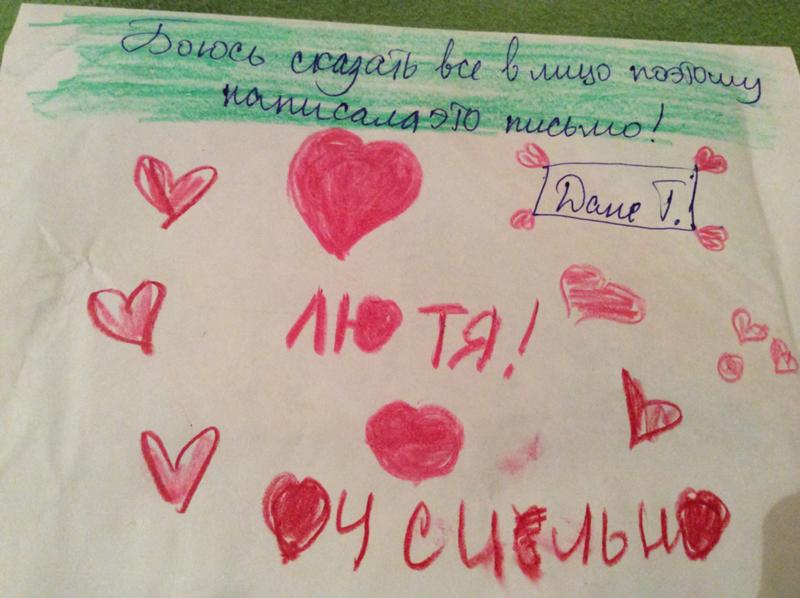 Боюсь сказать все в лицо поэтому
написала это письмо!
Дане Т.
ЛЮ ТЯ!
ОЧ СИЛЬНО